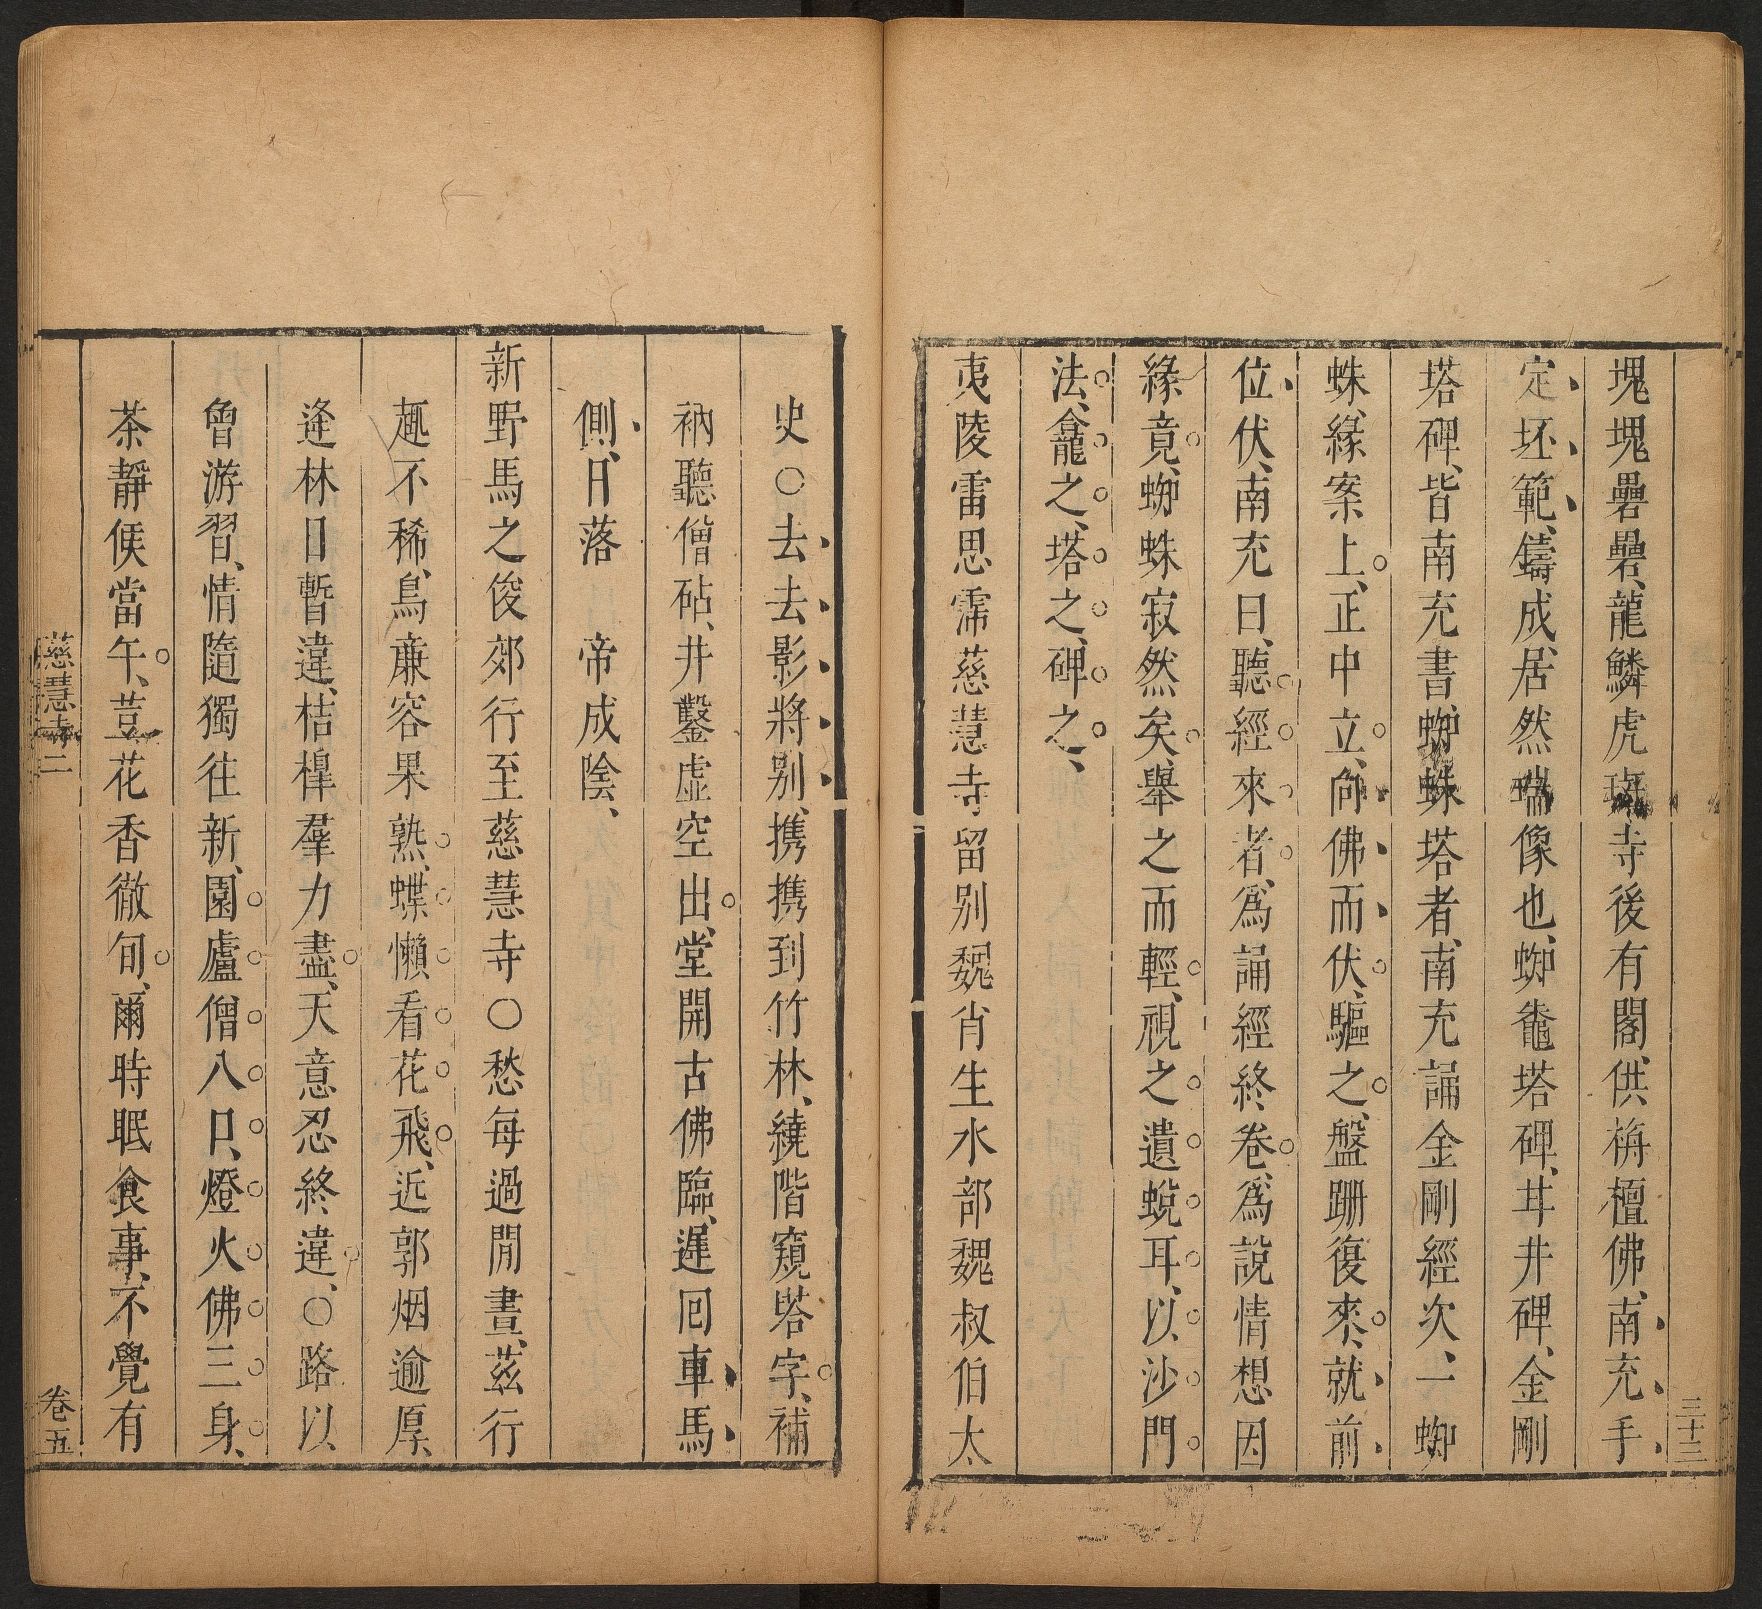 塊塊礨礨、龍鱗虎斑、寺後有閣、供栴檀佛、南充手
定坯範、鑄成、居然瑞像也、蜘䵹塔碑、井井碑、金剛
塔碑、皆南充書、蜘蛛塔者、南充誦金剛經次、一蜘
蛛、緣案上、正中立、向佛而伏、驅之、盤跚復來、就前
位伏、南充曰、聽經來者、爲誦經終卷、爲說情想因
緣竟、蜘蛛寂然矣、舉之而輕、視之遺蛻耳、以沙門
法、龕之、塔之、碑之、
夷陵雷思霈慈慧寺留別魏肖生水部魏叔伯太
三十三
史○去去影將別、携携到竹林、繞階窺塔字、補
衲聽僧砧、井鑿虛空出、堂開古佛臨、遲囘車馬
側、日落帝成陰、
新野馬之俊郊行至慈慧寺○愁每過閒晝、茲行
趣不稀、鳥廉容果熟、蝶懶看花飛、近郭烟逾厚、
逢林日暫違、桔槔羣力盡、天意忍終違、○路以
曾游習、情隨獨往新、園廬僧八口、燈火佛三身、
茶靜候當午、荳花香徹旬、爾時眠食事、不覺有
慈慧寺二
卷五